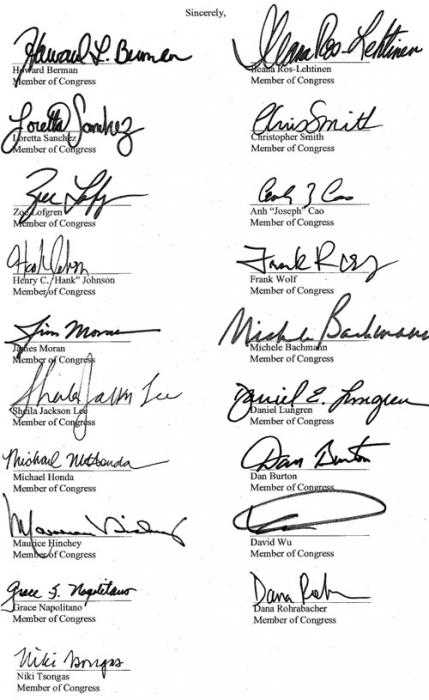 Sincerely,
Howard L. Berman
Howard Berman
Member of Congress
Ileana Ros-Lehtinen
Ileana Ros-Lehtinen
Member of Congress
Loretta Sanchez
Loretta Sanchez
Member of Congress
Chris Smith
Christopher Smith
Member of Congress
Zoe Lofgren
Zoe Lofgren
Member of Congress
Anh "Joseph" Cao
Member of Congress
Henry C. "Hank" Johnson
Member of Congress
Frank R
Frank Wolf
Member of Congress
Jim Moran
James Moran
Member of Congress
Michele Bachmann
Michele Bachmann
Member of Congress
Sheila Jackson Lee
Sheila Jackson Lee
Member of Congress
Daniel E. Lungren
Daniel Lungren
Member of Congress
Michael M Honda
Michael Honda
Member of Congress
Dan Burton
Dan Burton
Member of Congress
Maurice Hinchey
Maurice Hinchey
Member of Congress
David Wu
Member of Congress
Grace F. Napolitano
Grace Napolitano
Member of Congress
Dana
Dana Rohrabacher
Member of Congress
Niki Tsongas
Niki Tsongas
Member of Congress